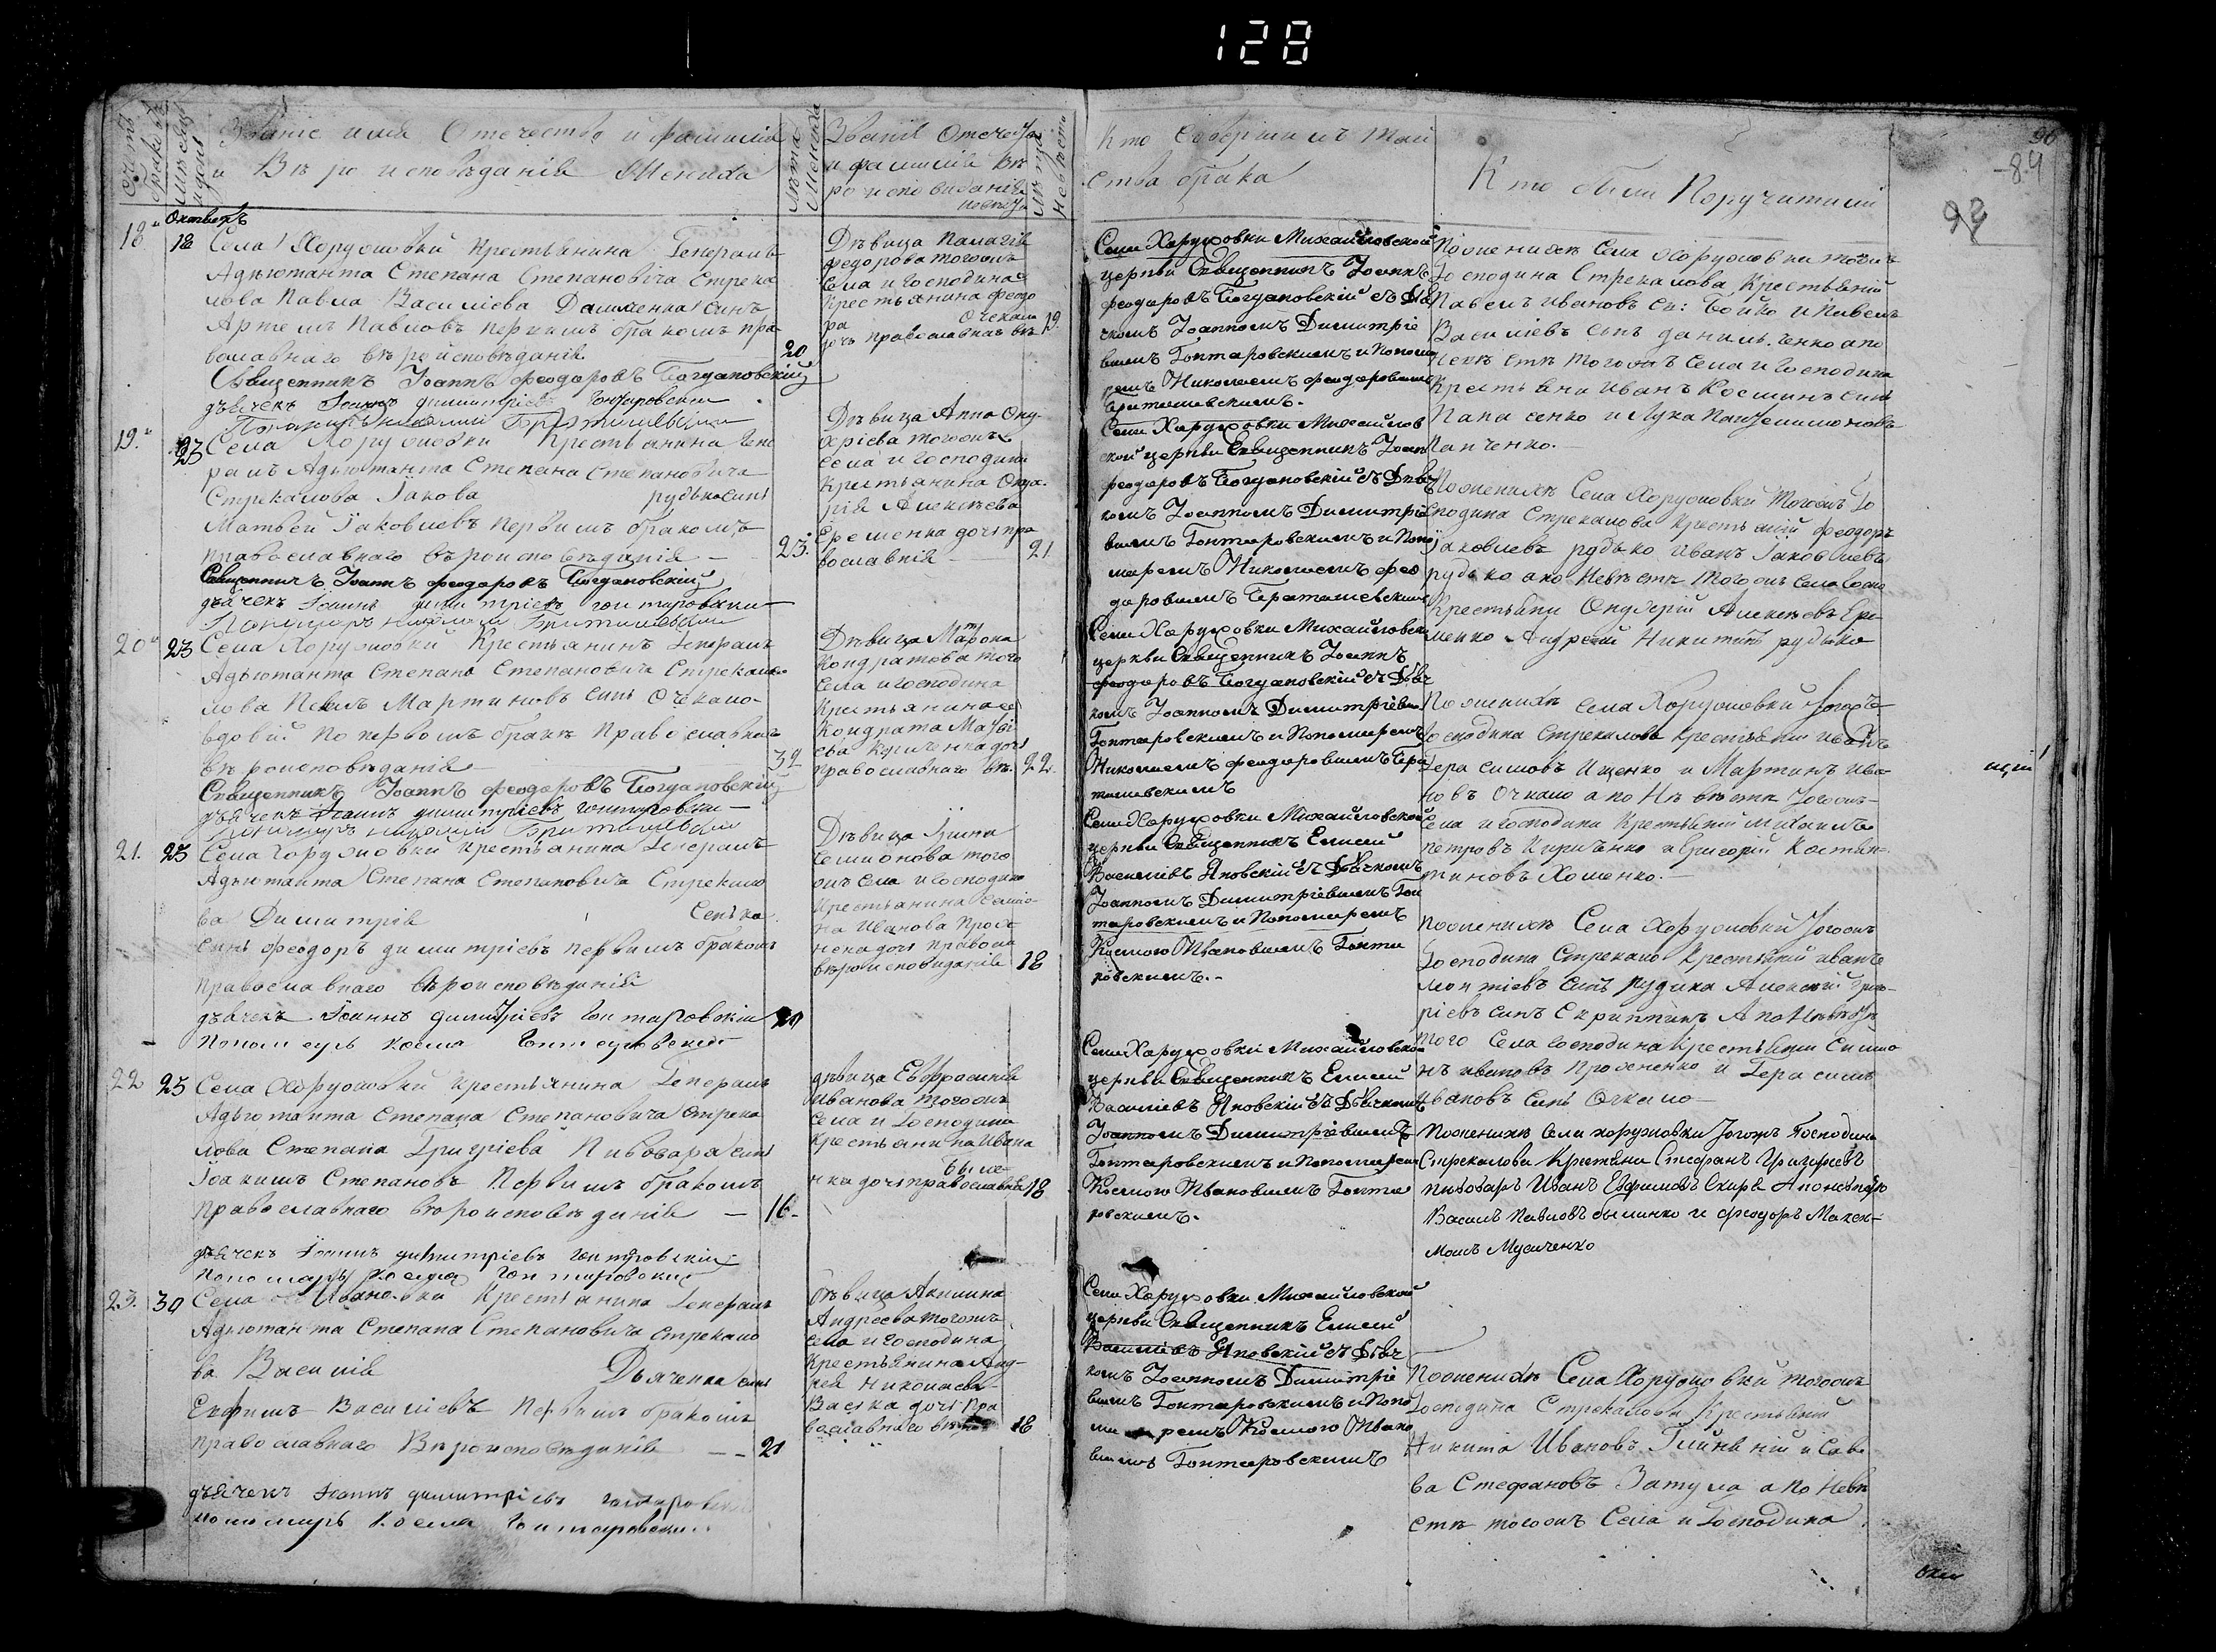 128
96
-84
93
Счетъ браковъ
Мѣсяцъ и день
Званіе имя Отечество и фамилія
и Вѣроисповѣданія Жениха
Лѣта Жениха
Званіе Отечест
и фамилія вѣ
роисповиданія
невесты
Лѣта Невѣсти
Кто Совершилъ таи
ства брака
Кто были Поручители
18
Октябрь
18
Села Хоружовки Крестьянина Генералъ
Адьютанта Степана Степановича Стрека
лова Павла Василіева Данилченка синъ
Артемъ Павловъ первимъ бракомъ пра
вославнаго вѣроисповѣданія
20
Священникъ Іоаннъ феодоровъ Богдановскій
дьячекъ Іоаннъ димитріевъ Гонтаровскій
Дѣвица Палагія
федорова тогожъ
Села и Господина
Крестьянина федо
ра Очкала
дочь православнаъ вѣ
19
Села Харужовки Михайловской
церкви Священникъ Іоаннъ
феодоровъ Богдановскій съ Дья
чкомъ Іоанномъ Димитріе
вымъ Гонтаровскимъ и Понома
ремъ Николаемъ феодоровымъ
Браташевскимъ.
По женихѣ Села Хоружовки тогожъ
Господина Стрекалова Крестьяній
Павелъ Ивановъ Сн: Бойко и Павелъ
Василіевъ синъ данильченко а по
невѣстѣ тогожъ Села и Господина
Крестьяни Иванъ Косминъ синъ
Папченко.
19
23
Села Хоружовки Крестьянина Гене
ралъ Адьютанта Степана Степановича
Стрекалова Іакова рудька синъ
Матвей Іаковлевъ первимъ бракомъ
православнаго вѣроисповѣданія —
23.
Священникъ Іоаннъ феодоровъ Богдановскій
дьячекъ Іоаннъ димитріевъ Гонтаровскій
Дѣвица Анна Ону
фріева тогожъ
села и Господина
Крестьянина Онуф
рія Алексѣева
Еременка дочь пра
вославнія
21
Села Харужовки Михайлов
ской церкви Священникъ Іоаннъ
феодоровъ Богдановскій съ Дьяч
комъ Іоанномъ Димитріе
вымъ Гонтаровскимъ и Поно
маремъ Николаемъ фео
доровымъ Браташевскимъ
По женихѣ Села Хоружовки тогожъ Го
сподина Стрекалова крестьяній феодоръ
Іаковлевъ рудько Иванъ Іаковлевъ
рудько а по Невѣстѣ тогожъ села Госпо
Крестьяни Онуфрій Алексѣевъ Ере
менко Андрей Никитинъ рудько
20
23
Села Хоружовки Крестьянинъ Генералъ
Адьютанта Степана Степановича Стрека
лова Павлъ Мартиновъ синъ Очкало
вдовій по первомъ бракѣ Православнаго
вѣроисповѣданія
32
Священникъ Іоаннъ феодоровъ Богдановскій
дьячекъ Іоаннъ димитріевъ Гонтаровскій
Кондратова того
села и господина
Крестьянина
Кондрата
православнаго вѣ.
22.
Села Харужовки Михайловской
церкви Священникъ Іоаннъ
феодоровъ Богдановскій съ Дьяч
комъ Іоанномъ Димитріевымъ
Гонтаровскимъ и Пономаремъ
Николаемъ феодоровымъ Бра
ташевскимъ
По женихѣ села Хоружовки тогожъ
Господина Стрекалова крестьяни Иванъ
Герасимовъ Ищенко и Мартинъ Ива
новъ Очкало а по Невѣстѣ тогожъ
Села и господина Крестьяній Михаилъ
Петровъ Кириченко и Григорій Костян
тиновъ Хоменко.
21.
25
Села Хоружовки Крестьянина Генералъ
Адьютанта Степана Степановича Стрекало
ва Димитрія Сенька
синъ Феодоръ димитріевъ первимъ бракомъ
православнаго вѣроисповѣданія
дьячекъ Іоаннъ димитріевъ Гонтаровскій
20
Пономарь Косма Гонтаровскій
Дѣвица Ірина
Семионова того
жъ Села и Господина
Крестьянина Семио
на Иванова Прох
ненка дочь Правосл
вѣроисповиданія
18
Села Харужовки Михайловской
церкви Священникъ Елисей
Василіевъ Яновскій съ Дьячкомъ
Іоанномъ Димитріевымъ Гон
таровскимъ и Пономаремъ
Космою Ивановымъ Гонта
ровскимъ.-
По женихѣ Села Хоружовки тогожъ
Господина Стрекало Крестьяній Иванъ
Монтіевъ синъ рудика Алексей Григо
ріевъ синъ Скрипникъ А по Невѣстѣ
того Села господина Крестьяни Симио
нъ Ивановъ Прохненко и Герасимъ
Ивановъ синъ Очкало
22
25
Села Хоружовки Крестьянина Генералъ
Адьютанта Степана Степановича Стрека
лова Степана Григоріева Пивовара синъ
Іоакимъ Степановъ Первимъ бракомъ
православнаго вѣроисповѣданія —
16-
дьячекъ Іоаннъ димитріевъ Гонтаровскій
Пономарь Косма Гонтаровскій
дѣвица Евфросинія
Иванова тогожъ
Села и Господина
Крестьянина Ивана
нка дочь православн
18
Села Харужовки Михайловской
церкви Священникъ Елисей
Василіевъ Яновскій съ Дьячкомъ
Іоанномъ Димитріевымъ
Гонтаровскимъ и Пономаремъ
Космою Ивановымъ Гонта
ровскимъ.
По женихѣ Села хоружовки тогожъ Господина
Стрекалова Крестьяни Стефанъ Григоріевъ
пивоваръ Иванъ Ефимовъ Скира А по невѣстѣ
Василь Павловъ и феодоръ Макси
мовъ Мусиченко
23.
30
Села Ивановки Крестьянина Генералъ
Адьютанта Степана Степановича Стрекало
ва Василія Дьяченка синъ
Евфимъ Василіевъ Первимъ бракомъ
православнаго Вѣроисповѣданія — —
21
дьячекъ Іоаннъ димитріевъ Гонтаровскій
пономарь Косма Гонтаровскій
Дѣвица Акилина
Андреева тогожъ
села и господина
Крестьянина Анд
рея Николаева
Васька дочь Пра
вославнаго вѣ
18
Села Харужовки Михайловской
церкви Священникъ Елисей
Василіевъ Яновскій съ Дьяч
комъ Іоанномъ Димитріе
вымъ Гонтаровскимъ и Поно
ма ремъ Космою Ивано
вымъ Гонтаровскимъ
По женихѣ Села Хоружовки тогожъ
Господина Стрекалова Крестьяній
Никита Ивановъ и Сав
ва Стефановъ Затула а по Невѣ
стѣ тогожъ Села и Господина